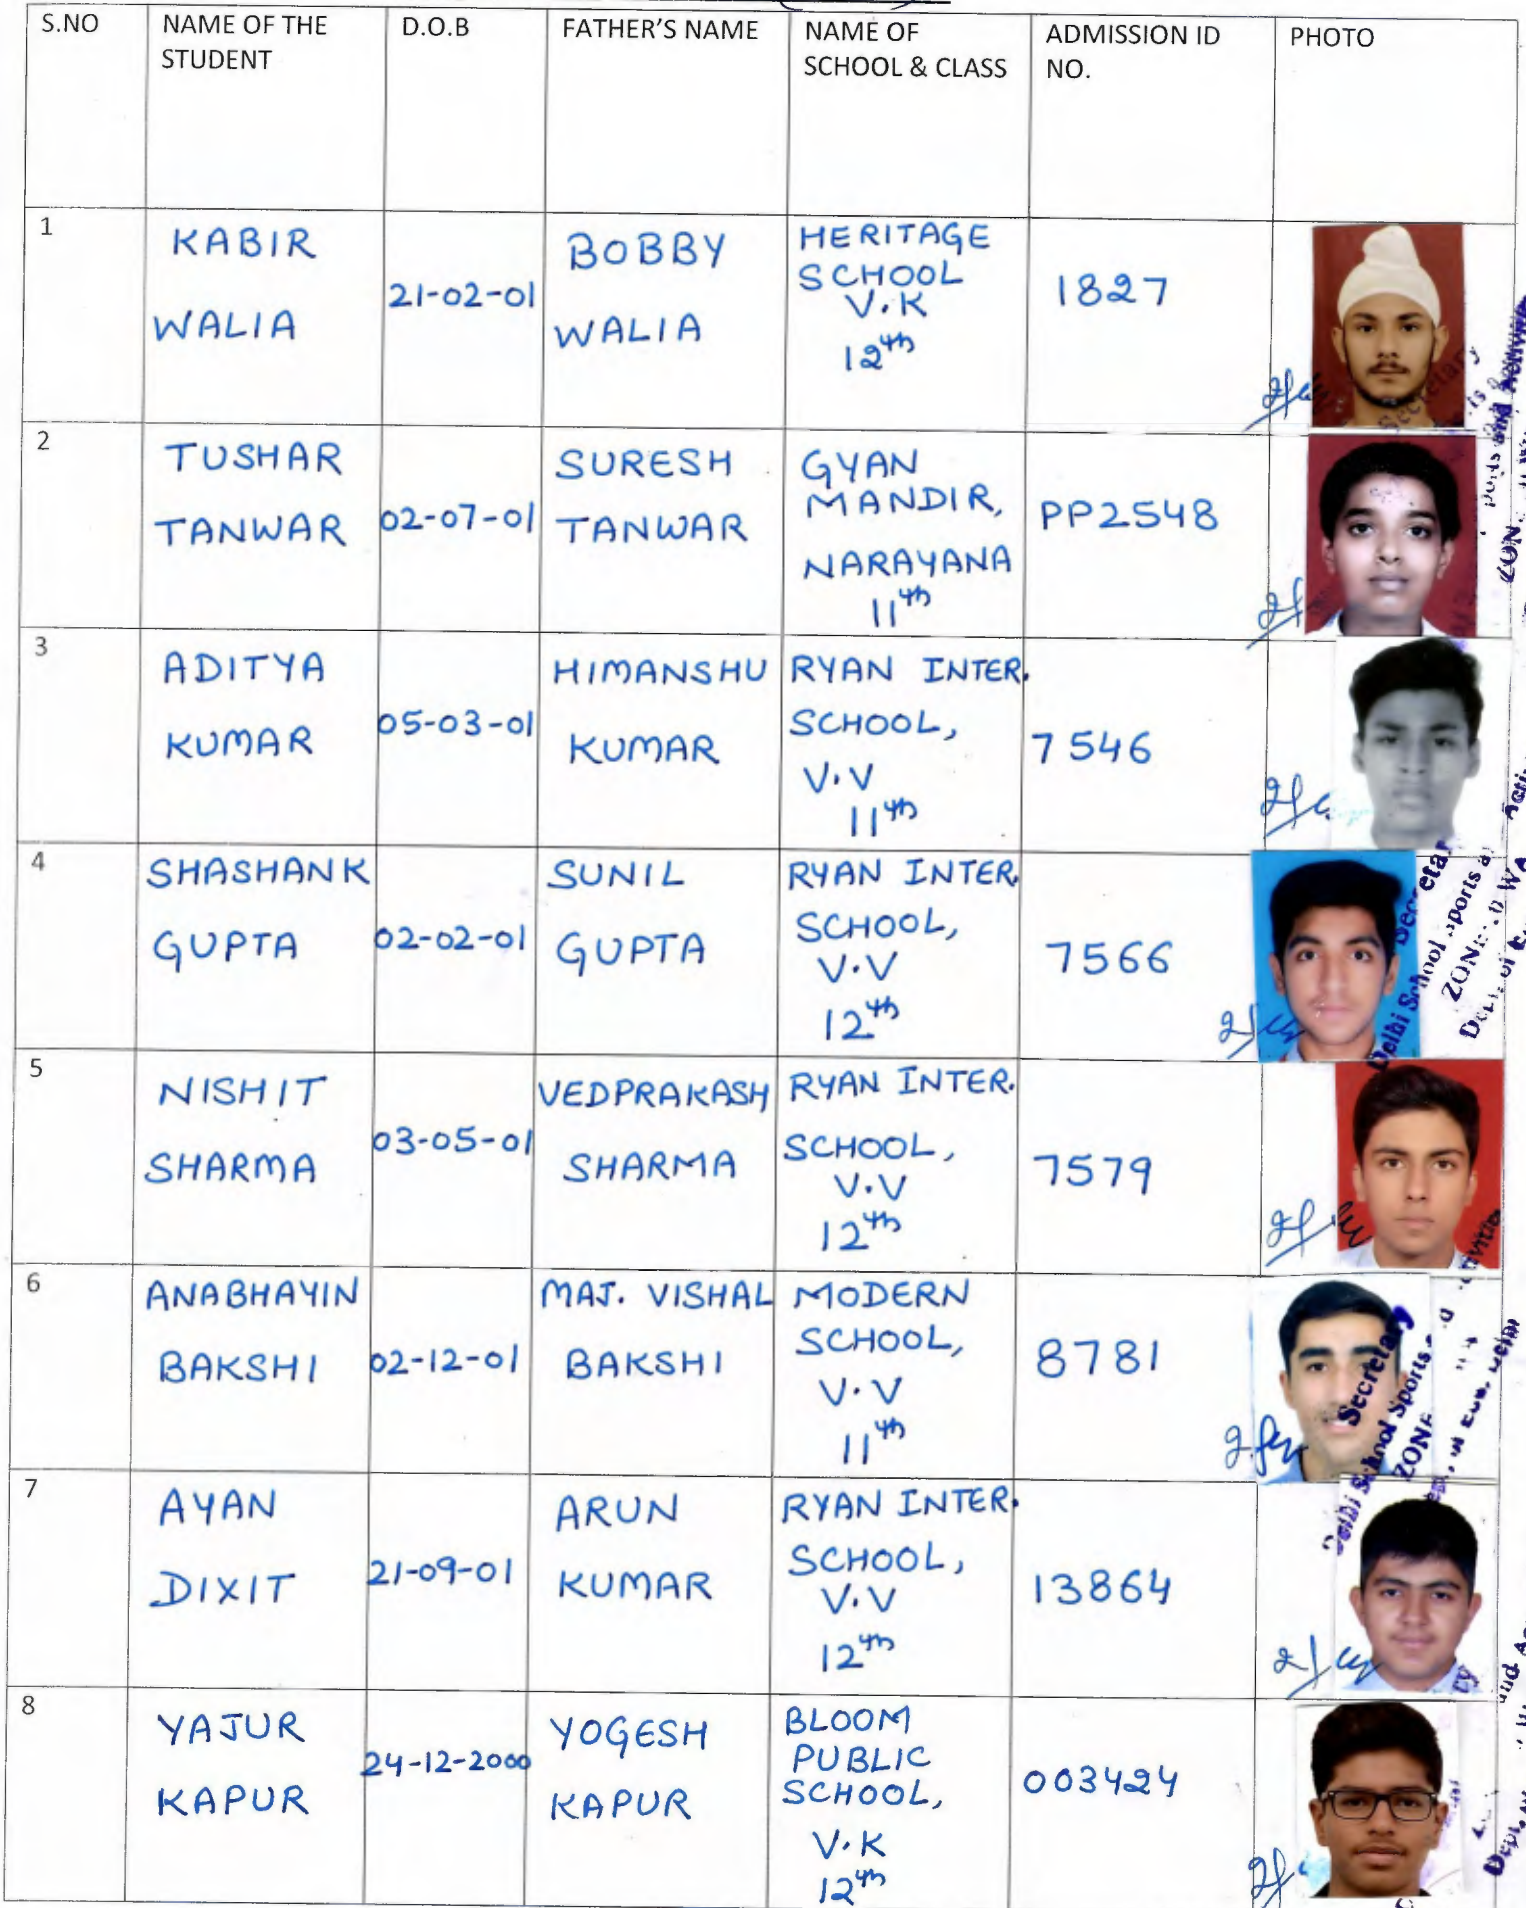 S.NO NAME OF THE STUDENT D.O.B FATHER'S NAME NAME OF SCHOOL & CLASS ADMISSION ID NO. PHOTO
1
KABIR
WALIA
21-02-01
BOBBY
WALIA
HERITAGE
SCHOOL
V.K
12th
1827
Secretary
2
TUSHAR
TANWAR
02-07-01
SURESH
TANWAR
GYAN
MANDIR,
NARAYANA
11th
PP2548
3
ADITYA
KUMAR
05-03-01
HIMANSHU
KUMAR
RYAN INTER.
SCHOOL,
V.V
11th
7546
4
SHASHANK
GUPTA
02-02-01
SUNIL
GUPTA
RYAN INTER.
SCHOOL,
V.V
12th
7566
Delhi School Sports
5
NISHIT
SHARMA
03-05-01
VEDPRAKASH
SHARMA
RYAN INTER.
SCHOOL,
V.V
12th
7579
6
ANABHAYIN
BAKSHI
02-12-01
MAJ. VISHAL
BAKSHI
MODERN
SCHOOL,
V.V
11th
8781
Secretary
Delhi School Sports
7
AYAN
DIXIT
21-09-01
ARUN
KUMAR
RYAN INTER.
SCHOOL,
V.V
12th
13864
8
YAJUR
KAPUR
24-12-2000
YOGESH
KAPUR
BLOOM
PUBLIC
SCHOOL,
V.K
12th
003424